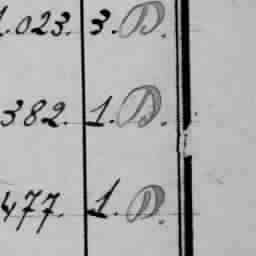 1.023. 3. D.
382. 1. D.
477. 1. D.